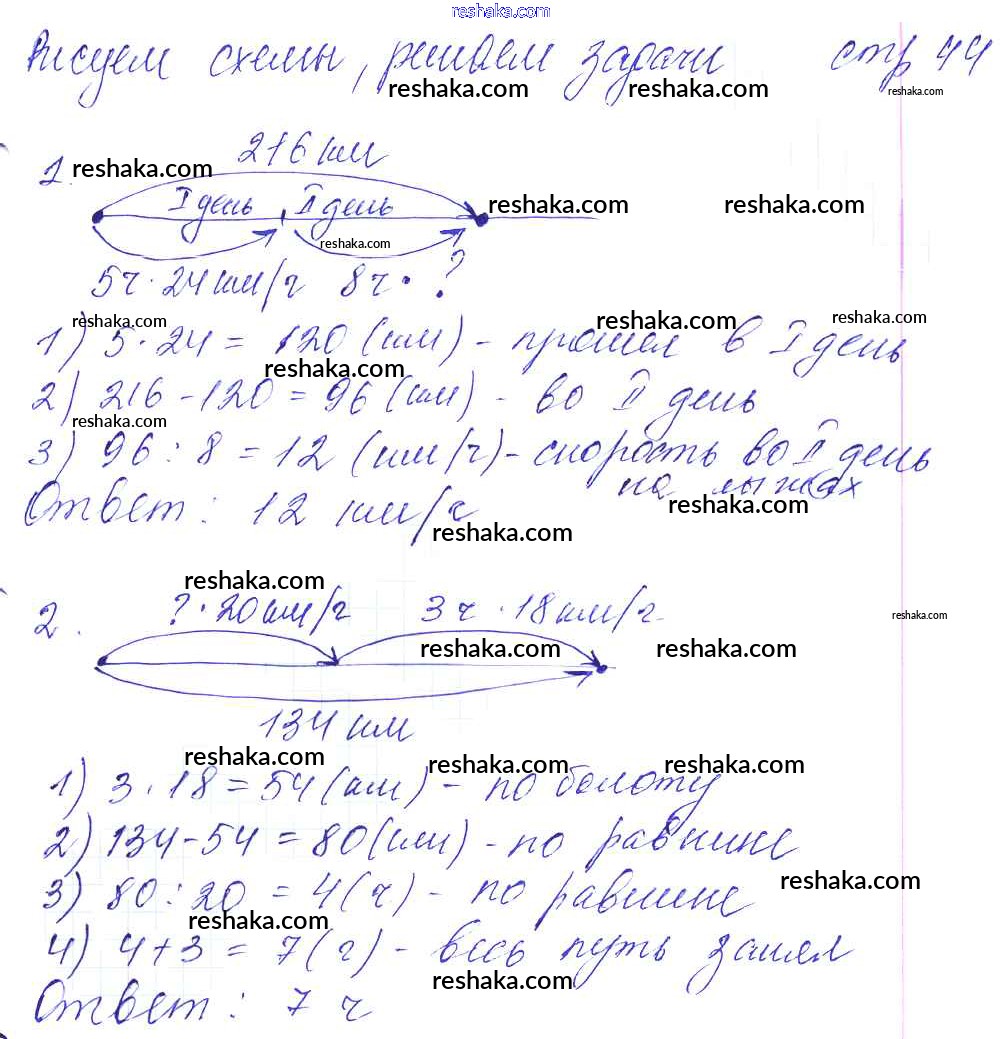 reshaka.com
Рисуем схемы, решаем задачи стр 44
reshaka.com reshaka.com reshaka.com
216 км
1. reshaka.com
I день II день reshaka.com reshaka.com
reshaka.com
5ч · 24 км/ч 8ч · ?
reshaka.com reshaka.com reshaka.com
1) 5 · 24 = 120 (км) - прошел в I день
reshaka.com
2) 216 - 120 = 96 (км) - во II день
reshaka.com
3) 96 : 8 = 12 (км/ч) - скорость во II день
на лыжах
Ответ: 12 км/ч
reshaka.com
reshaka.com
reshaka.com
2. ? · 20 км/ч 3 ч · 18 км/ч
reshaka.com
reshaka.com reshaka.com
134 км
reshaka.com reshaka.com reshaka.com
1) 3 · 18 = 54 (км) - по болоту
2) 134 - 54 = 80 (км) - по равнине
3) 80 : 20 = 4 (ч) - по равнине
reshaka.com
reshaka.com
4) 4 + 3 = 7 (ч) - весь путь занял
reshaka.com
Ответ: 7 ч